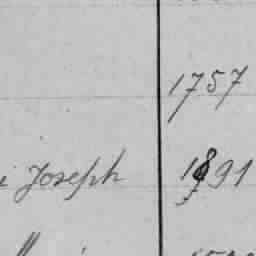 1757
i Joseph 1891